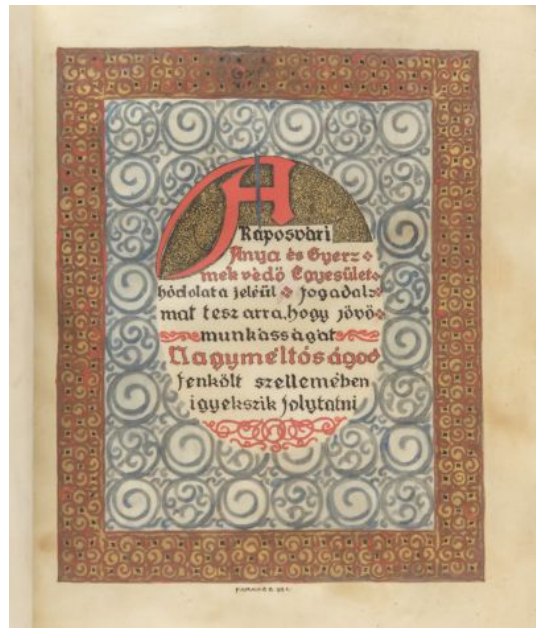 A
Kaposvári
Anya és Gyerz
mek védő Egyesület
hódolata jeléül fogadalz
mat tesz arra, hogy jövő
munkásságát
Nagyméltóságod
fenkölt szellemében
igyekszik folytatni